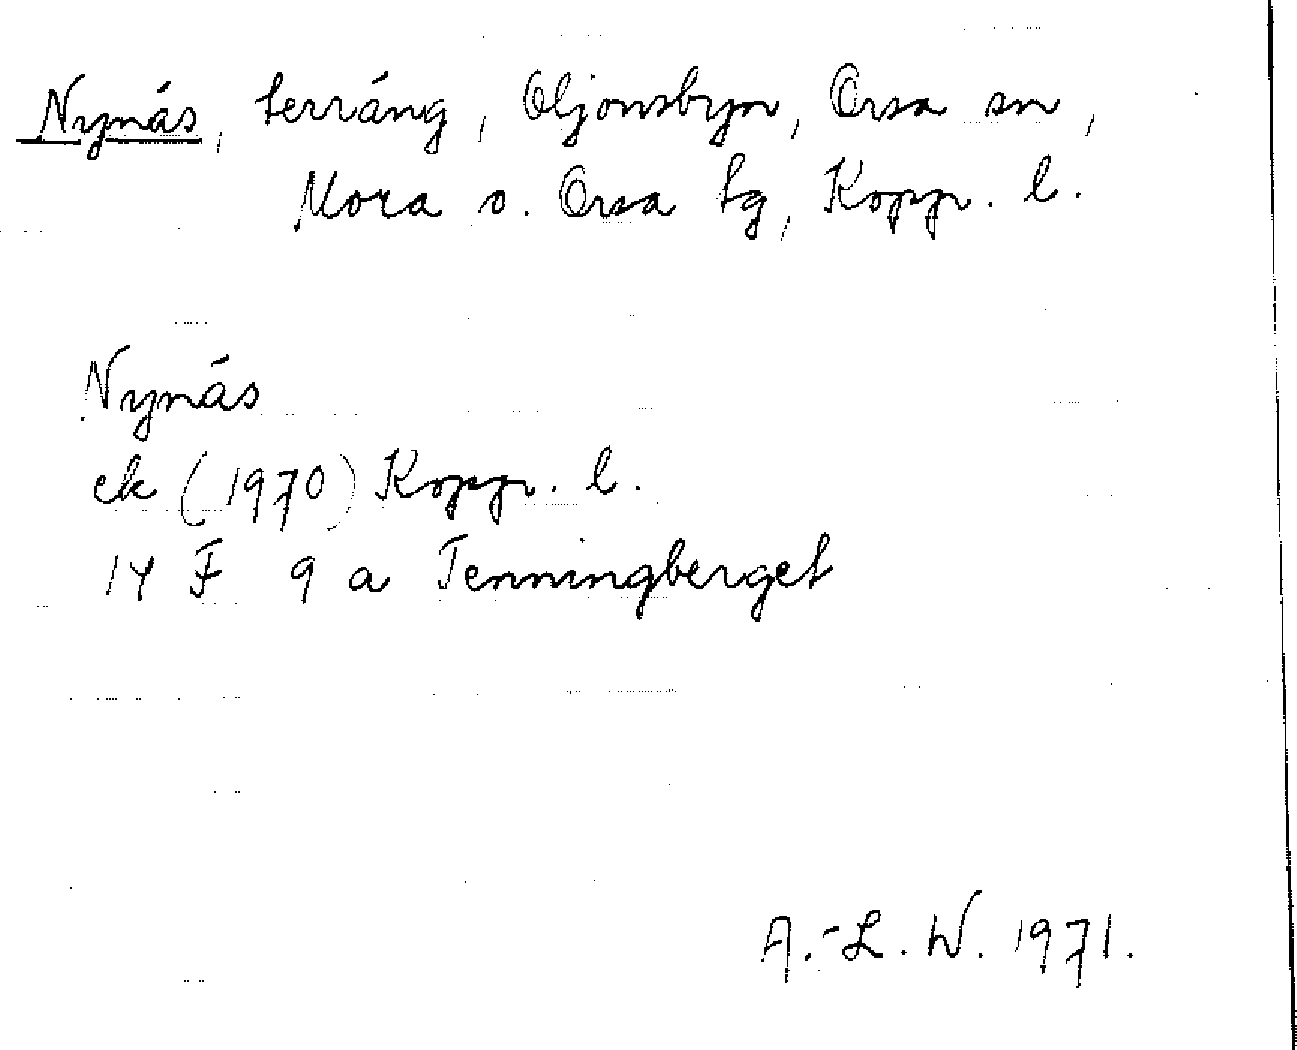 Nynäs, terräng, Oljonsbyn, Orsa sn,
Mora o. Orsa tg, Kopp. l.
Nynäs
ek (1970) Kopp. l.
14 F 9 a Tenningberget
A.-L. W. 1971.